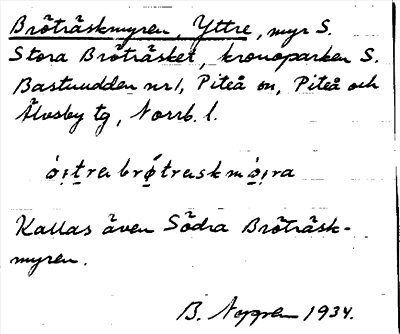 Bröträskmyren, Yttre, myr S.
Stora Bröträsket, kronoparken S.
Bastuudden nr 1, Piteå sn, Piteå och
Älvsby tg, Norrb. l.
Kallas även Södra Bröträsk-
myren.
B. 1934.